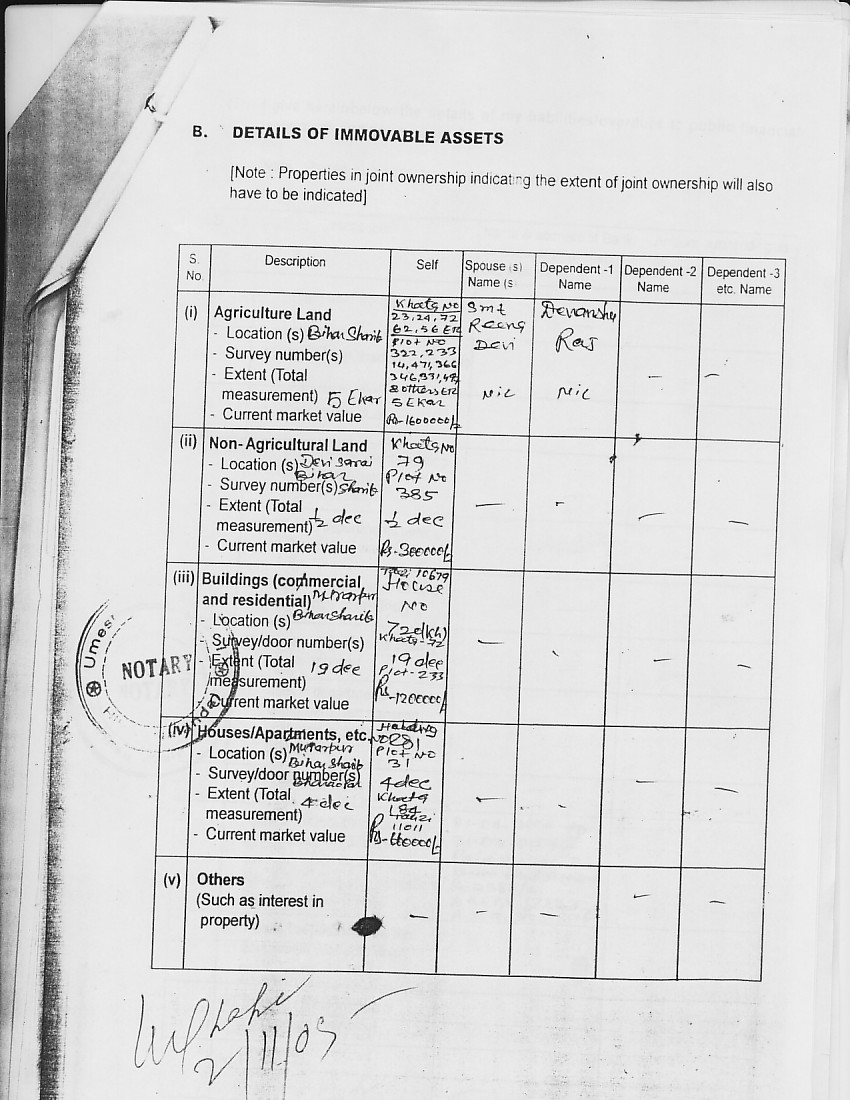 B. DETAILS OF IMMOVABLE ASSETS
[Note : Properties in joint ownership indicating the extent of joint ownership will also
have to be indicated]
S. No.
Description
Self
Spouse (s) Name (s
Dependent -1 Name
Dependent -2 Name
Dependent -3 etc. Name
(i) Agriculture Land
- Location (s) Bihar Sharif
- Survey number(s)
- Extent (Total
measurement) 5 Ekar
- Current market value
Khata No
23,24,72
62,56 Etc
Plot No
322,233
14,471,366
& others Etc
5 Ekar
Rs-1600000/-
Smt
Reena
Devi
Nil
Devanshu
Raj
Nil
—
—
(ii) Non-Agricultural Land
- Location (s) Devisarai
Bihar
- Survey number(s) Sharif
- Extent (Total
measurement) ½ dec
- Current market value
Khata No
79
Plot No
385
½ dec
Rs-300000/-
—
-
—
—
(iii) Buildings (commercial
and residential) Murarpur
- Location (s) Bihar Sharif
- Survey/door number(s)
- Extent (Total 19 dec
measurement)
- Current market value
Tauzi 10679
House
No
72d(Kh)
Khata-72
19 dec
Plot-233
Rs-1200000/-
—
—
—
(iv) Houses/Apartments, etc.
- Location (s) Murarpur
Bihar Sharif
- Survey/door number(s)
- Extent (Total 4 dec
measurement)
- Current market value
Holding
No 281
Plot No
31
4 dec
Khata
184
Tauzi
11011
—
—
—
(v) Others
(Such as interest in
property)
—
-
—
—
—
Umes
NOTARY
2/11/05